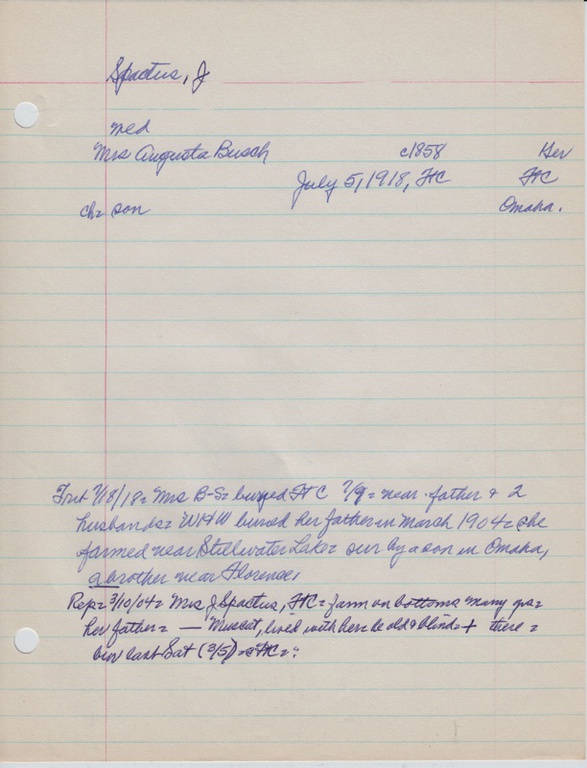 Spactus, J
med
Mrs Augusta Busch c1858 Ger
July 5, 1918, FtC FtC
ch= son Omaha.
Trib 7/18/18= Mrs B-S= buryed FtC 7/9= near father & 2
husbands= WHW buried her father in March 1904= she
farmed near Stillwater Lake= sur by a son in Omaha,
a brother near Florence,
Rep= 3/10/04= Mrs J Spactus, FtC= farm on bottoms many yrs=
her father= — Muscat, lived with her= be old & blind= + there=
bur last Sat (3/5)= FtC=: